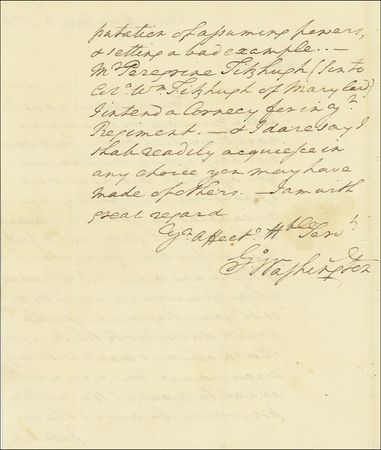 putation of assuming powers,
& setting a bad example. . —
Mr Peregrine Fitzhugh (Son to
Colo. Wm Fitzhugh of Maryland)
I intend a Cornecy for in yr
Regiment. — & I dare say I
shall readily acquiesce in
any choice you may have
made of others. — I am with
great regard
Yr Affecte Hble Servt
Go Washington